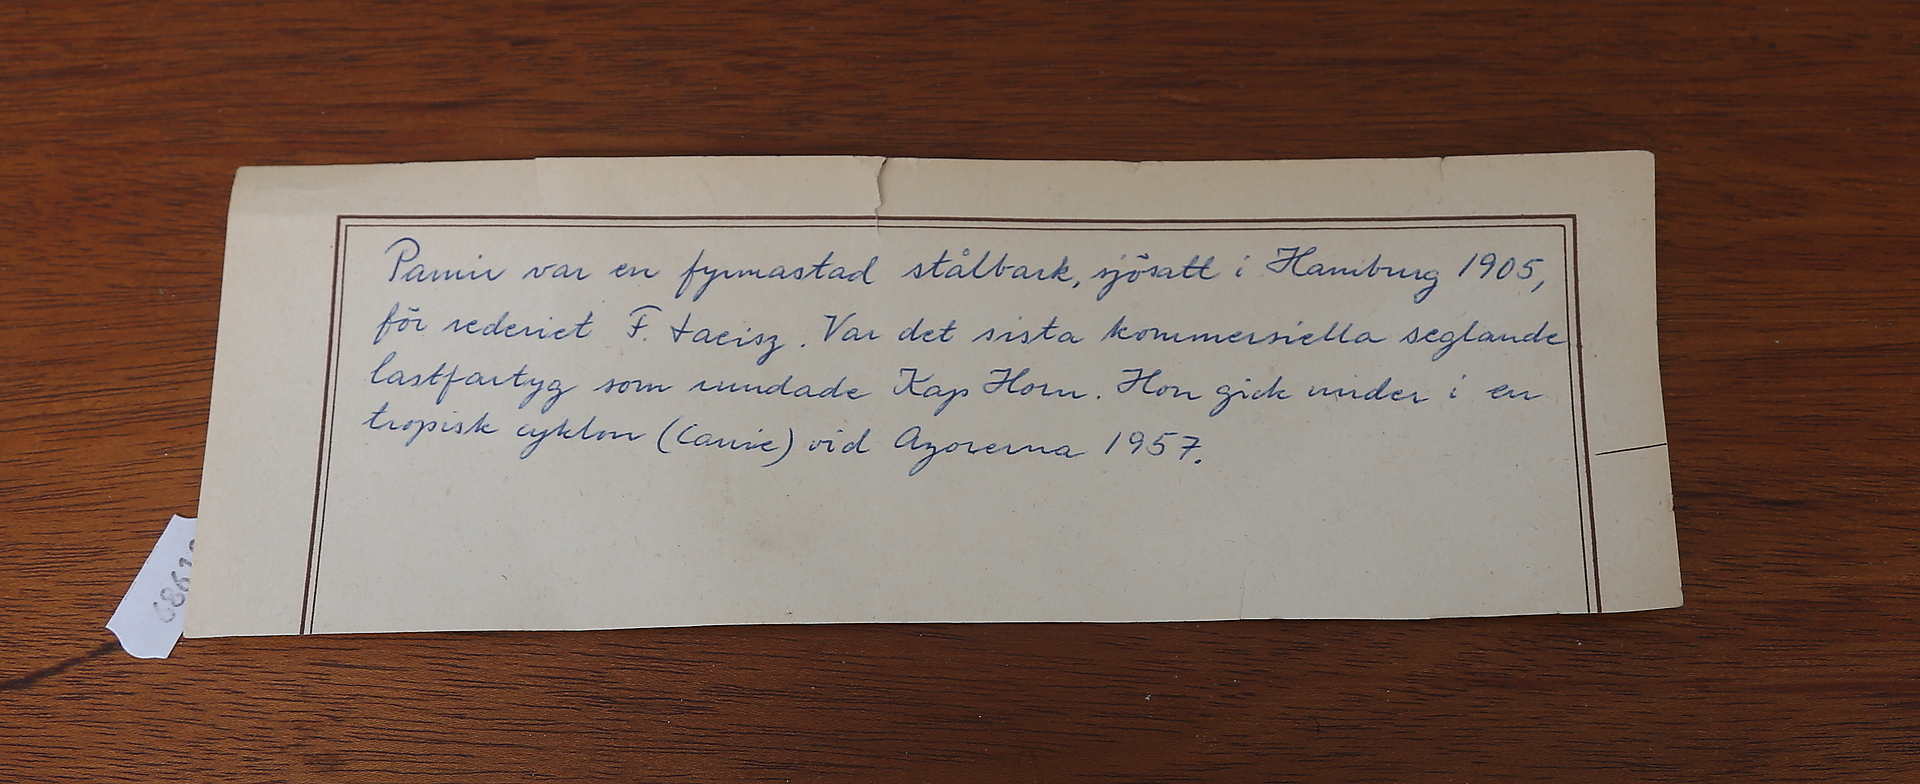 Pamir var en fyrmastad stålbark, sjösatt i Hamburg 1905,
för rederiet F. Laeisz. Var det sista kommersiella seglande
lastfartyg som rundade Kap Horn. Hon gick under i en
tropisk cyklon (Carrie) vid Azorerna 1957.